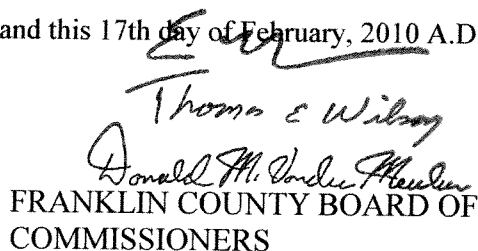 and this 17th day of February, 2010 A.D
Thomas E Wilson
Donald M. Vander Meulen
FRANKLIN COUNTY BOARD OF
COMMISSIONERS